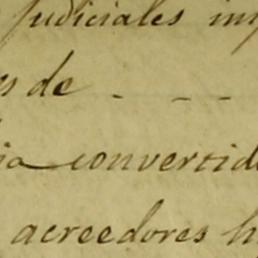 judiciales im
s de - - -
ia convertid
acreedores h